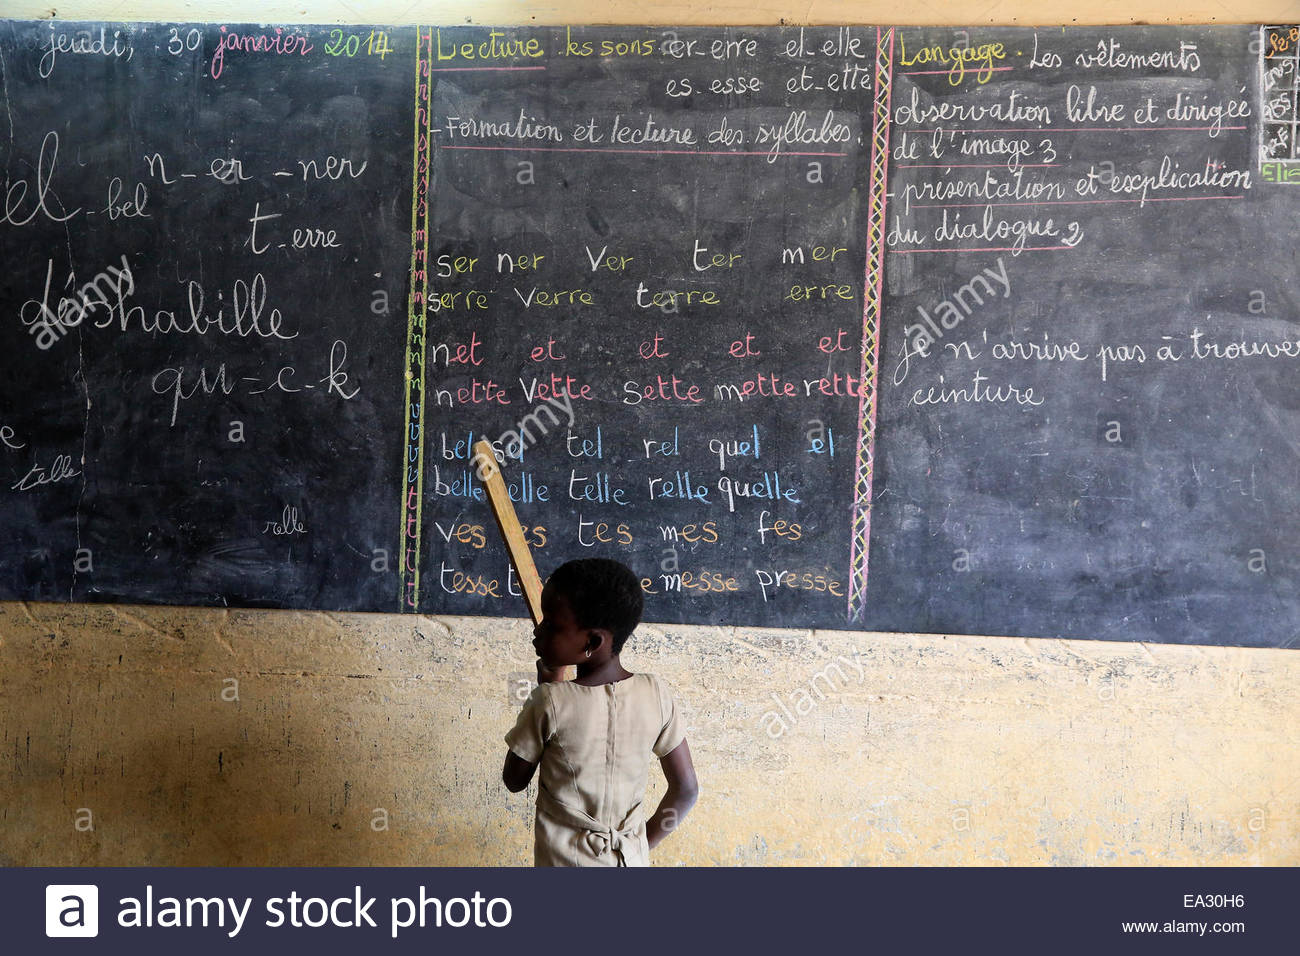 jeudi, 30 janvier 2014
el -bel n-er-ner
t-erre
déshabille
qu=c-k
telle
relle
Lecture les sons er-erre el-elle
es-esse et-ette
- Formation et lecture des syllabes.
ser ner ver ter mer
serre verre terre erre
net et et et et
nette vette sette mette rette
bel sel tel rel quel el
belle elle telle relle quelle
ves es tes mes fes
tesse t e messe presse
Langage. Les vêtements
- observation libre et dirigée
de l'image 3
- présentation et explication
du dialogue 2
je n'arrive pas à trouver
ceinture
INS
ABS
a alamy stock photo
EA30H6
www.alamy.com
alamy